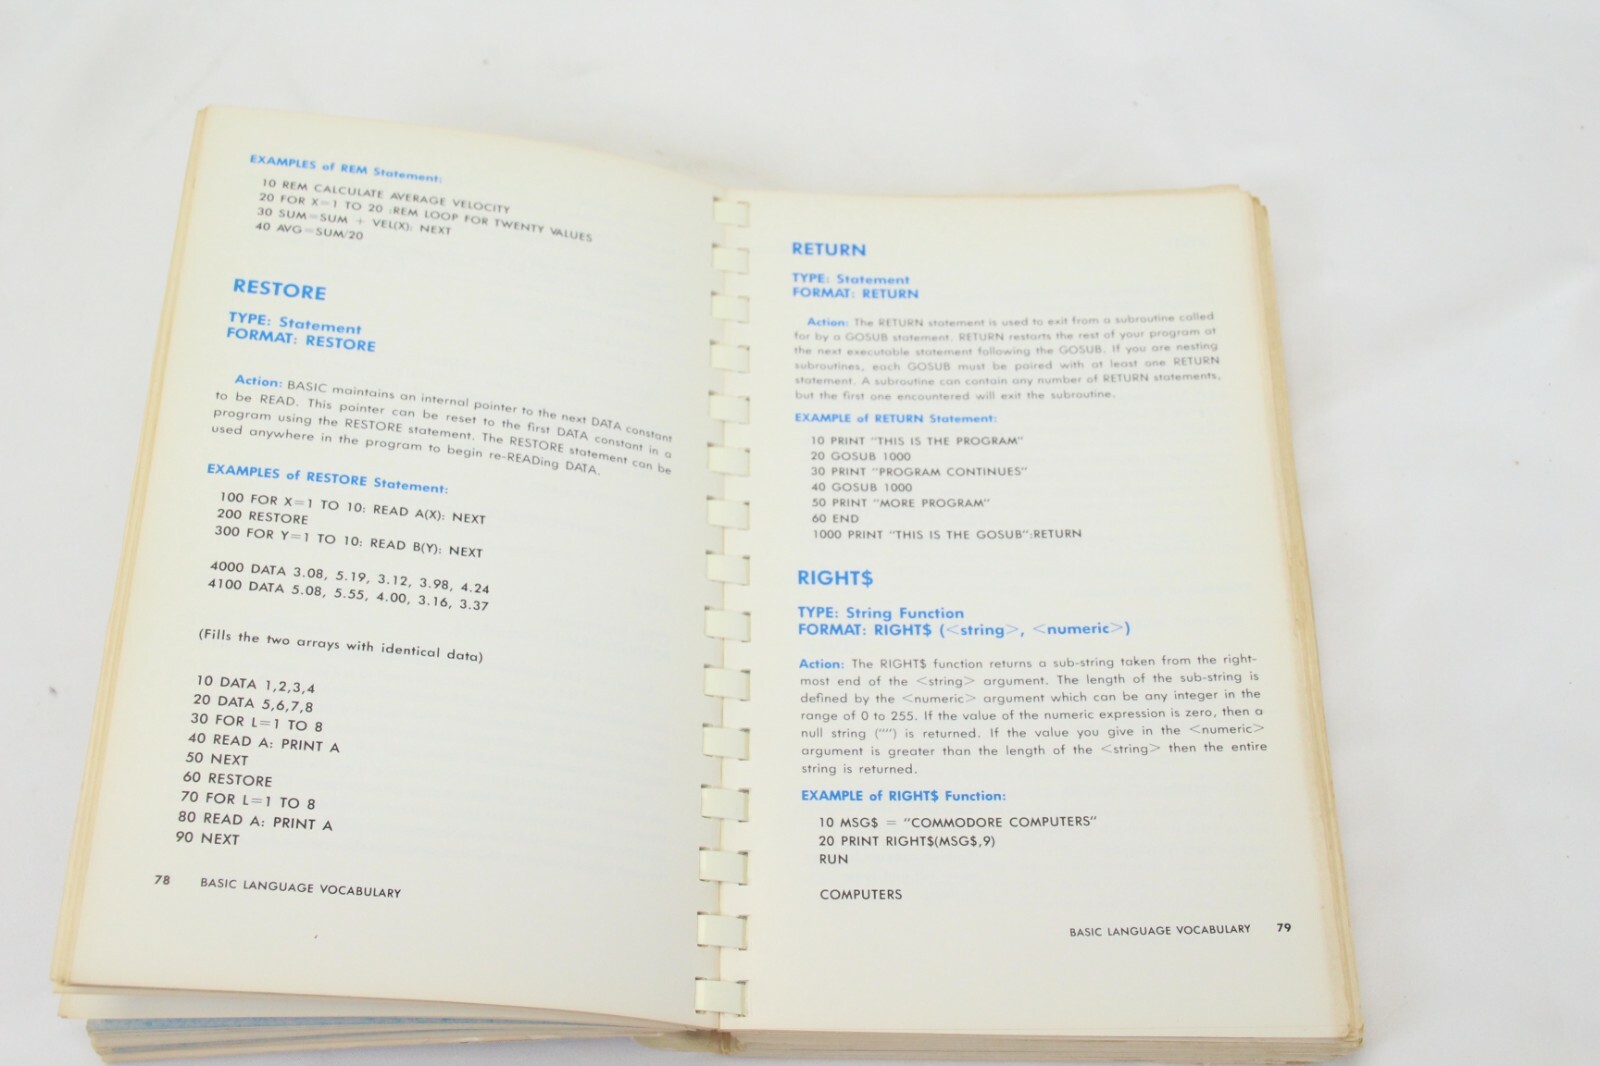 EXAMPLES of REM Statement:
10 REM CALCULATE AVERAGE VELOCITY
20 FOR X=1 TO 20 :REM LOOP FOR TWENTY VALUES
30 SUM=SUM + VEL(X): NEXT
40 AVG=SUM/20
RESTORE
TYPE: Statement
FORMAT: RESTORE
Action: BASIC maintains an internal pointer to the next DATA constant
to be READ. This pointer can be reset to the first DATA constant in a
program using the RESTORE statement. The RESTORE statement can be
used anywhere in the program to begin re-READing DATA.
EXAMPLES of RESTORE Statement:
100 FOR X=1 TO 10: READ A(X): NEXT
200 RESTORE
300 FOR Y=1 TO 10: READ B(Y): NEXT
4000 DATA 3.08, 5.19, 3.12, 3.98, 4.24
4100 DATA 5.08, 5.55, 4.00, 3.16, 3.37
(Fills the two arrays with identical data)
10 DATA 1,2,3,4
20 DATA 5,6,7,8
30 FOR L=1 TO 8
40 READ A: PRINT A
50 NEXT
60 RESTORE
70 FOR L=1 TO 8
80 READ A: PRINT A
90 NEXT
78 BASIC LANGUAGE VOCABULARY
RETURN
TYPE: Statement
FORMAT: RETURN
Action: The RETURN statement is used to exit from a subroutine called
for by a GOSUB statement. RETURN restarts the rest of your program at
the next executable statement following the GOSUB. If you are nesting
subroutines, each GOSUB must be paired with at least one RETURN
statement. A subroutine can contain any number of RETURN statements,
but the first one encountered will exit the subroutine.
EXAMPLE of RETURN Statement:
10 PRINT "THIS IS THE PROGRAM"
20 GOSUB 1000
30 PRINT "PROGRAM CONTINUES"
40 GOSUB 1000
50 PRINT "MORE PROGRAM"
60 END
1000 PRINT "THIS IS THE GOSUB":RETURN
RIGHT$
TYPE: String Function
FORMAT: RIGHT$ (<string>, <numeric>)
Action: The RIGHT$ function returns a sub-string taken from the right-
most end of the <string> argument. The length of the sub-string is
defined by the <numeric> argument which can be any integer in the
range of 0 to 255. If the value of the numeric expression is zero, then a
null string ("") is returned. If the value you give in the <numeric>
argument is greater than the length of the <string> then the entire
string is returned.
EXAMPLE of RIGHT$ Function:
10 MSG$ = "COMMODORE COMPUTERS"
20 PRINT RIGHT$(MSG$,9)
RUN
COMPUTERS
BASIC LANGUAGE VOCABULARY 79